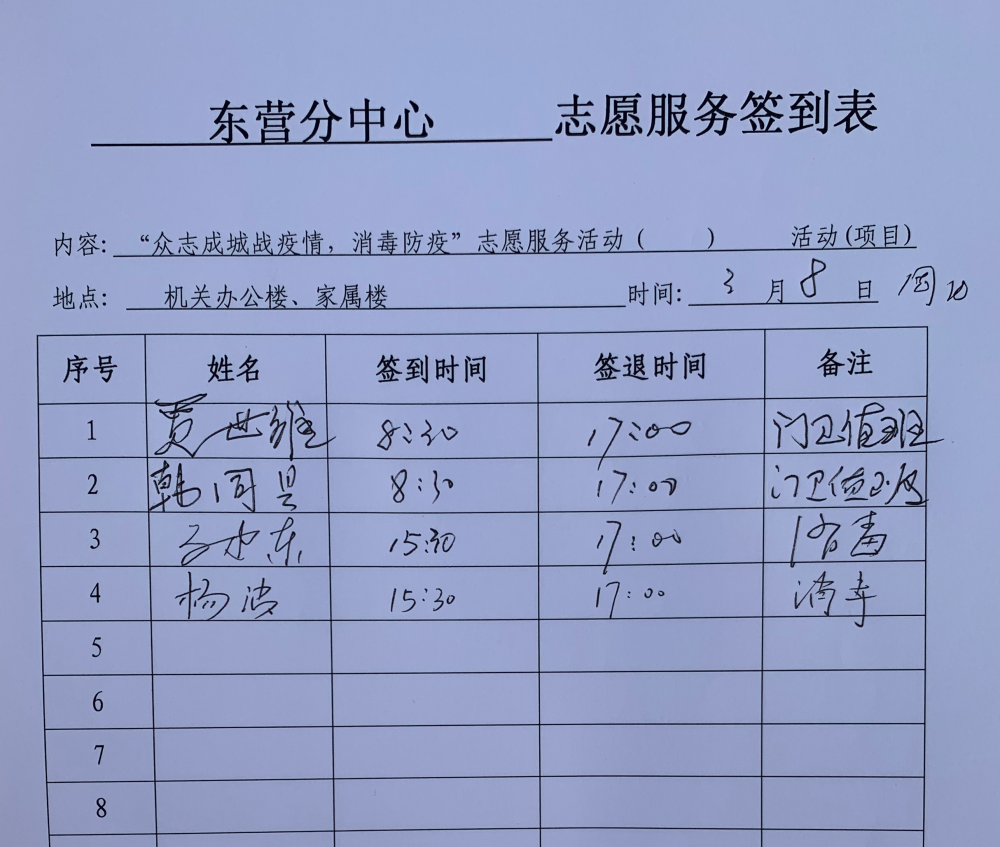 东营分中心 志愿服务签到表
内容: “众志成城战疫情，消毒防疫”志愿服务活动 ( ) 活动(项目)
地点: 机关办公楼、家属楼 时间: 3 月 8 日 周
序号 姓名 签到时间 签退时间 备注
1 贾世维 8:30 17:00 门卫值班
2 韩同 8:30 17:00 门卫值班
3 15:30 17:00 消毒
4 杨波 15:30 17:00
5
6
7
8